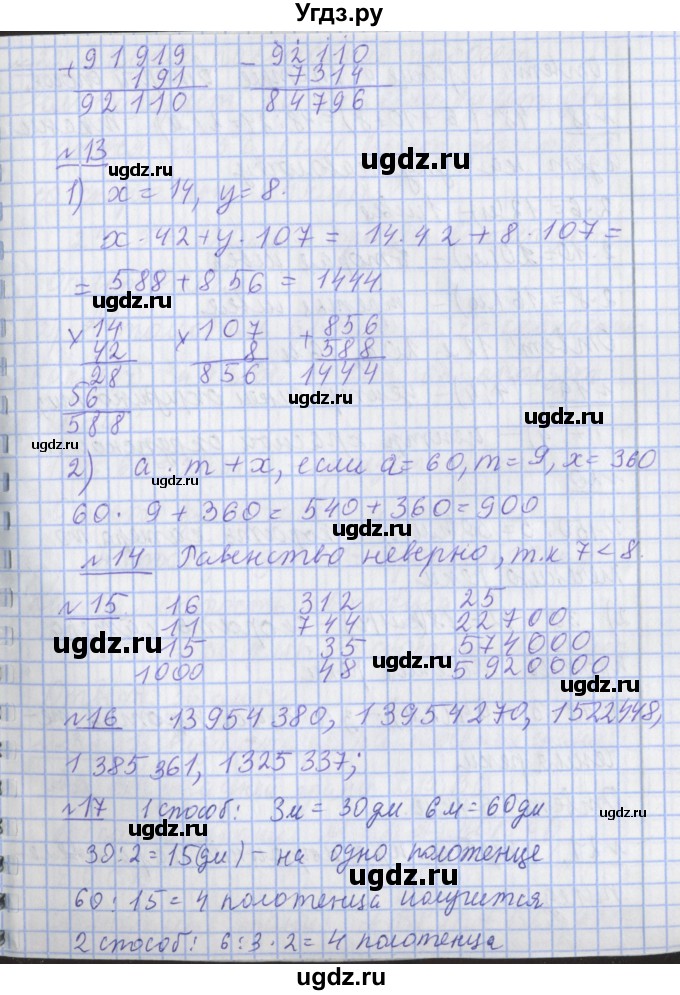 Угдз.ру
+ 91919 - 92110
191 7314
92110 84796
№13
ugdz.ru ugdz.ru
1) x = 14, y = 8.
x · 42 + y · 107 = 14 · 42 + 8 · 107 =
= 588 + 856 = 1444.
ugdz.ru
× 14 × 107 + 856
42 8 588
28 856 1444
56
ugdz.ru
588
ugdz.ru ugdz.ru
2) a · m + x, если a = 60, m = 9, x = 360
ugdz.ru
60 · 9 + 360 = 540 + 360 = 900
ugdz.ru
№14 Равенство неверно, т.к 7 < 8.
№15 16 312 25
11 744 22700
15 35 574000
1000 48 5 920000
ugdz.ru ugdz.ru ugdz.ru
№16 13954380, 13954270, 1522448,
1 385 361, 1325 337;
№17 1 способ: 3м = 30дм 6м = 60дм
ugdz.ru ugdz.ru
30 : 2 = 15(дм) - на одно полотенце
ugdz.ru
60 : 15 = 4 полотенца получится
2 способ: 6 : 3 · 2 = 4 полотенца
ugdz.ru